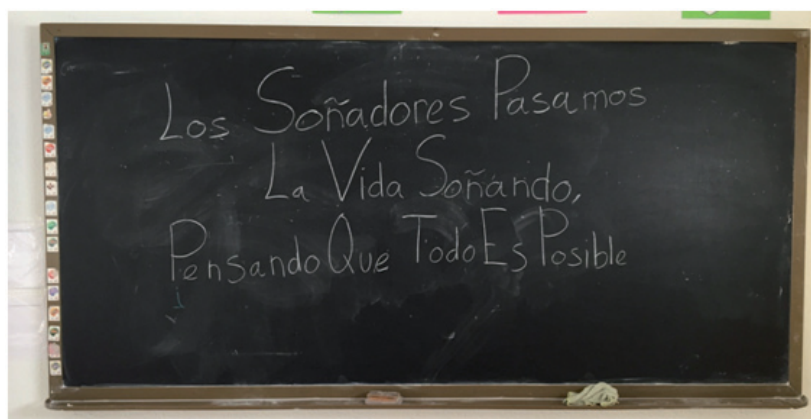 Los Soñadores Pasamos
La Vida Soñando,
Pensando Que Todo Es Posible